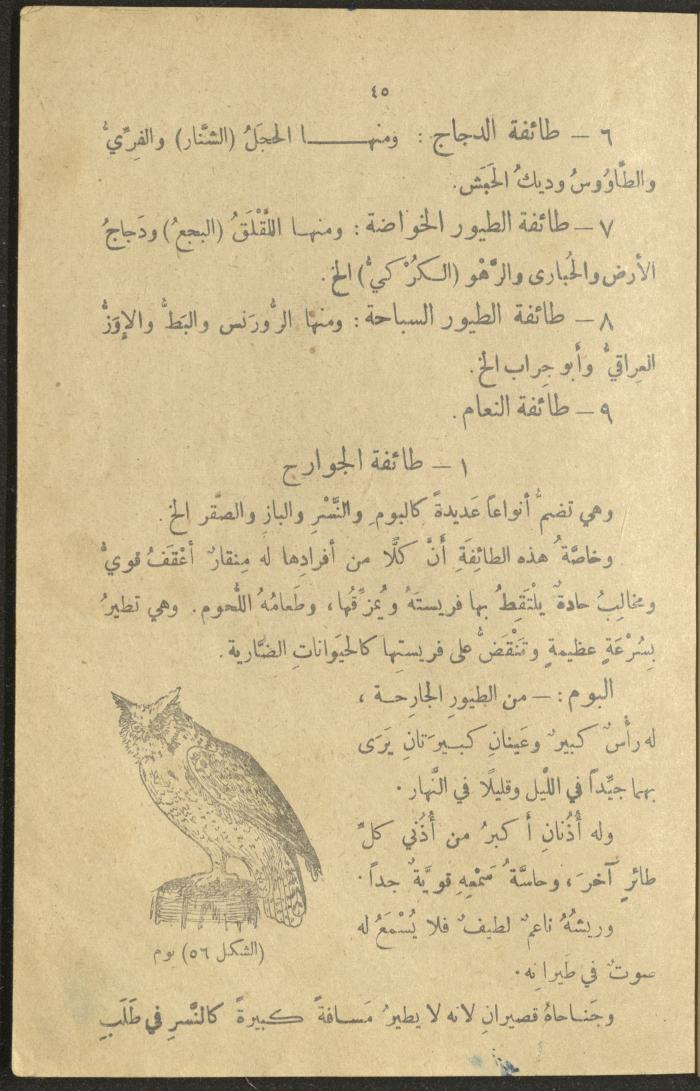 ٤٥
٦ – طائفة الدجاج : ومنهـــا الحجَلُ (الشَّنار) والفِرِّيُّ
والطَّاوُوسُ وديكُ الحَبَش.
٧ – طائفة الطيور الخواضة : ومنهـا اللَّقْلَقُ (البجعُ) ودَجاجُ
الأرض والحُبارى والرَّهْو (الـكُرْ كيُّ) الخ.
٨ – طائفة الطيور السباحة : ومنها الزُّورَنس والبَطُّ والإوَزُّ
العِراقيُّ وأَبو جِراب الخ.
٩ – طائفة النعام.
١ – طائفة الجوارح
وهي تضمُّ أنواعاً عَديدةً كالبوم والنَّسْرِ والبازِ والصَّقر الخ.
وخاصَّةُ هذه الطائِفَةِ أَنَّ كلًّا من أفرادِها له مِنقارٌ أَعْقَفُ قويٌّ
ومخالِيبُ حادةٌ يلْتَقِطُ بها فريستَهُ ويُمزِّقُها، وطَعامُهُ اللُّحوم. وهي تطيرُ
بِسُرْعَةٍ عظيمةٍ وتَنْقَضُّ على فريستِها كالحَيواناتِ الضَّارية.
البوم : – من الطيورِ الجارِحـة ،
له رأْسٌ كبيرٌ وعَينانِ كبـيرَتانِ يَرَى
بهما جيِّداً في اللَّيل وقليلًا في النَّهار.
وله أُذُنانِ أَ كبرُ من أُذُني كلِّ
طائرٍ آخرَ ، وحاسَّةُ سَمْعِهِ قويَّةٌ جداً.
وريشُهُ ناعمٌ لطيفٌ فلا يُسْمَعُ له
صوتٌ في طَيرانِه.
(الشكل ٥٦) بوم
وجَنـاحاهُ قصيرانِ لانه لا يطيرُ مَسـافةً كـبيرةً كالنَّسرِ في طَلَبِ